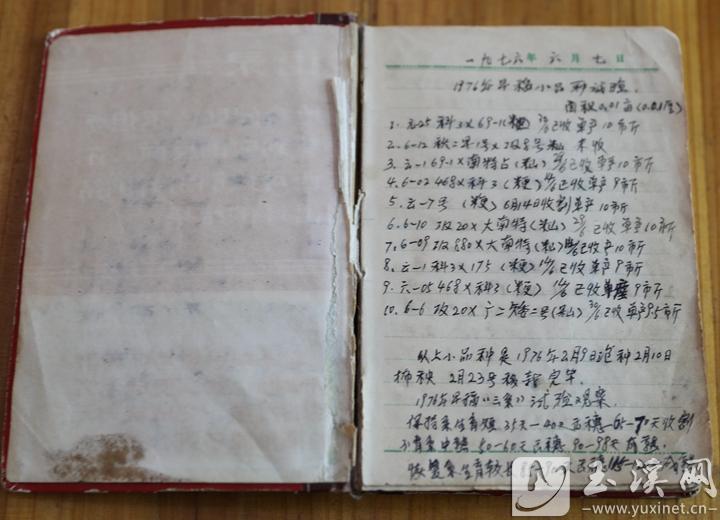 一九七六年六月七日
1976年早稻小品种试验.
面积0.01亩(0.01厘)
1. 元-25 科3×69-1(粳) 已收单产10市斤
2. 6-12 秋二早1号×2汲8号 籼 未收
3. 云-1 69-1×南特占(籼) 已收单产10市斤
4. 6-02 468×科3 (粳) 已收单产9市斤
5. 云-7号 (粳) 6月14日收割单产10市斤
6. 6-10 汲20×大南特(籼) 已收单产10市斤
7. 6-09 汲880×大南特(籼) 已收产10市斤
8. 云-1 科3×175 (粳) 已收单产9市斤
9. 六-05 468×科3 (粳) 已收单产9市斤
10. 6-6 汲20×广二矮二号(籼) 已收单产9.5市斤
以上小品种是1976年2月9日泡种2月10日
播秧 2月23号移 完毕.
1976年早稻《三系》试验观察
保持系生育短 35天-40天出穗 65-70天收割
不育系中穗 50-60天出穗 90-98天成熟.
恢复系生育较长 85-90天
玉溪网
-www.yuxinet.cn-